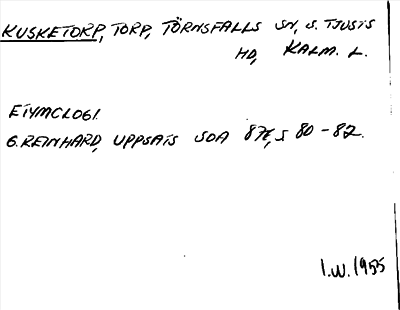 KUSKETORP, TORP, TÖRNSFALLS SN, S. TJUSTS
HD, KALM. L.
ETYMOLOGI.
G. REINHARD, UPPSATS SOA 876, S 80-82.
I.W. 1955